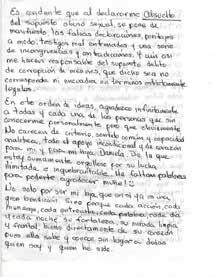 Es evidente que al declararme Absuelto
del supuesto abuso sexual, se pone de
manifiesto las falsas declaraciones, peritajes
a modo, testigos mal entrenados y una serie
de incongruencias y contradicciones. Y aun así
me hacen responsable del supuesto delito
de corrupción de menores, que dicho sea no
corresponde ni encuadra en términos estrictamente
legales.
En este orden de ideas, agradezco infinitamente
a todas y cada una de las personas que sin
conocerme personalmente, pero que obviamente
No carecen de criterio, sentido común y capacidad
analítica, todo el apoyo incondicional y de corazón
para mi y para mi hija Daniela. De la que
estoy sumamente orgulloso por su lucha
ilimitada e inquebrantable. Me faltan palabras
para poderte agradecer muñe!!
No solo por ser mi hija, que en sí ya es una
gran bendición. Sino porque cada acción, cada
mensaje, cada entrevista, cada palabra, cada día
y cada noche, su fortaleza, su mirada limpia
y frontal, viene directamente de su corazón
pues ella sabe y conoce sin lugar a dudas
quien soy y quien he sido.